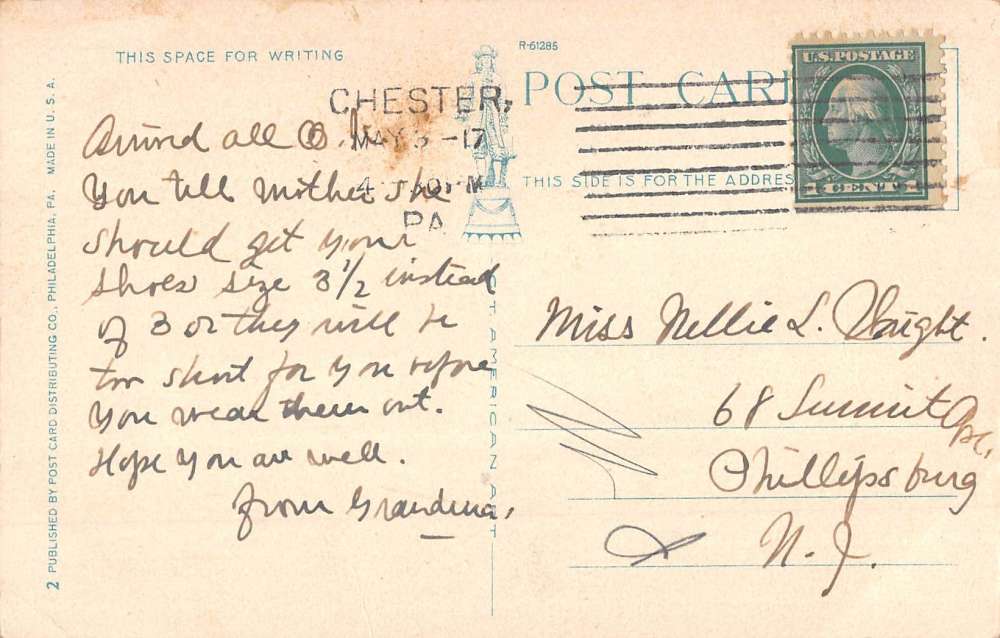 THIS SPACE FOR WRITING
R-61285
POST CARD
THIS SIDE IS FOR THE ADDRES
U.S. POSTAGE
CENT
CHESTER,
MAY 3 -17
4 30 PM
PA.
Arrived all O.K.
You tell mother she
should get your
shoes size 3 1/2 instead
of 3 or they will be
too short for you before
you wear them out.
Hope you are well.
from Grandma.
Miss Nellie L.
68 Summit Ave.
Phillipsburg
N. J.
2 PUBLISHED BY POST CARD DISTRIBUTING CO., PHILADELPHIA, PA. MADE IN U. S. A.
CT. AMERICAN ART